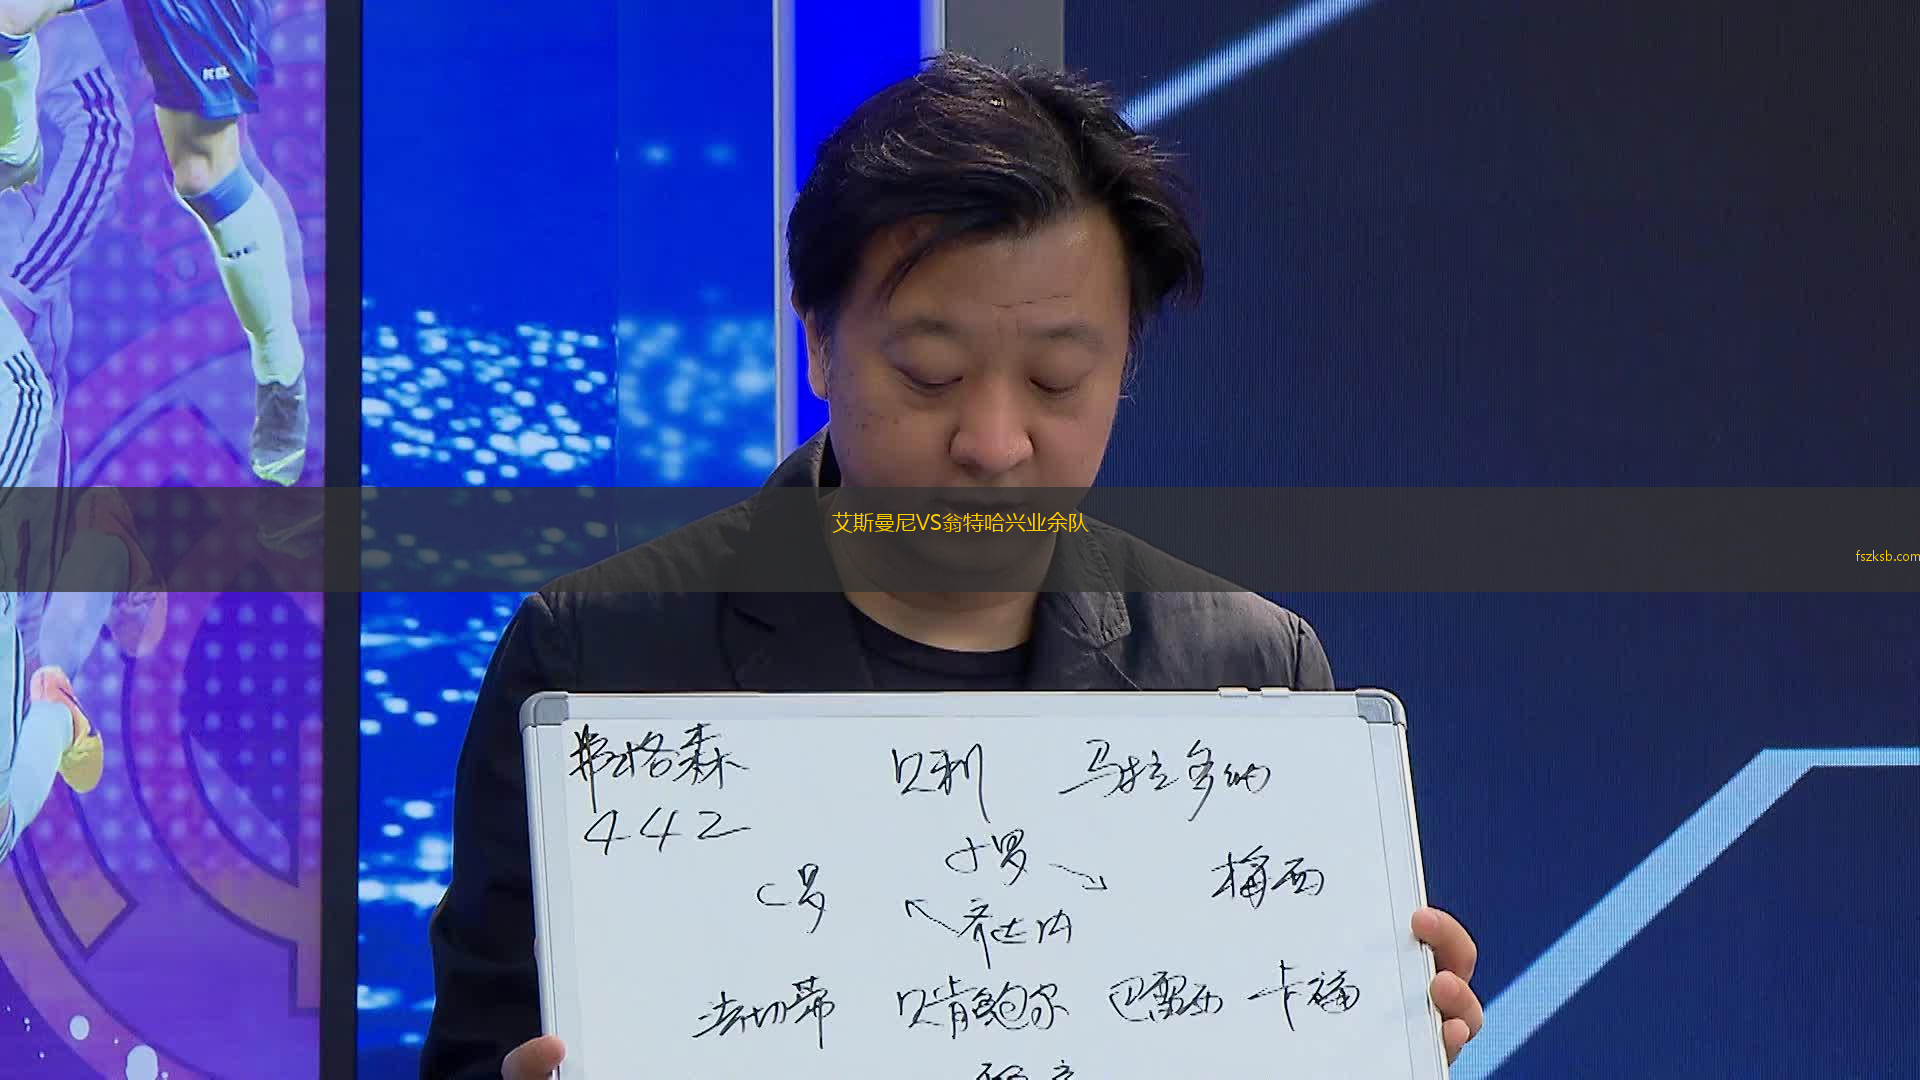 艾斯曼尼VS翁特哈兴业余队
fszksb.com
弗格森 贝利 马拉多纳
442
小罗
C罗 梅西
齐达内
法切蒂 贝肯鲍尔 巴雷西 卡福